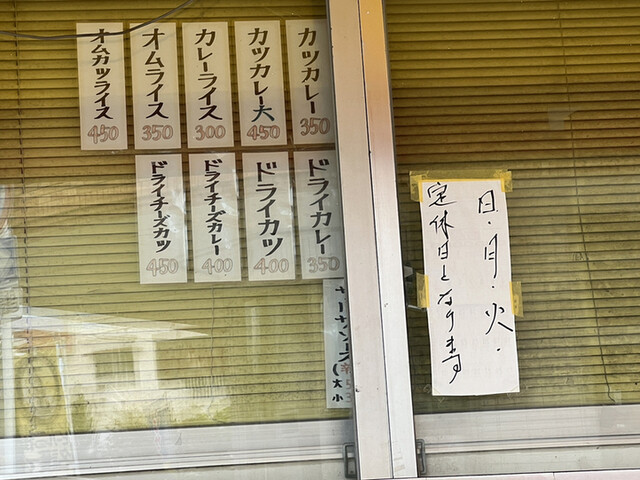 カツカレー 350
カツカレー大 450
カレーライス 300
オムライス 350
オムカツライス 450
ドライカレー 350
ドライカツ 400
ドライチーズカレー 400
ドライチーズカツ 450
大
小
日・月・火・
定休日となります